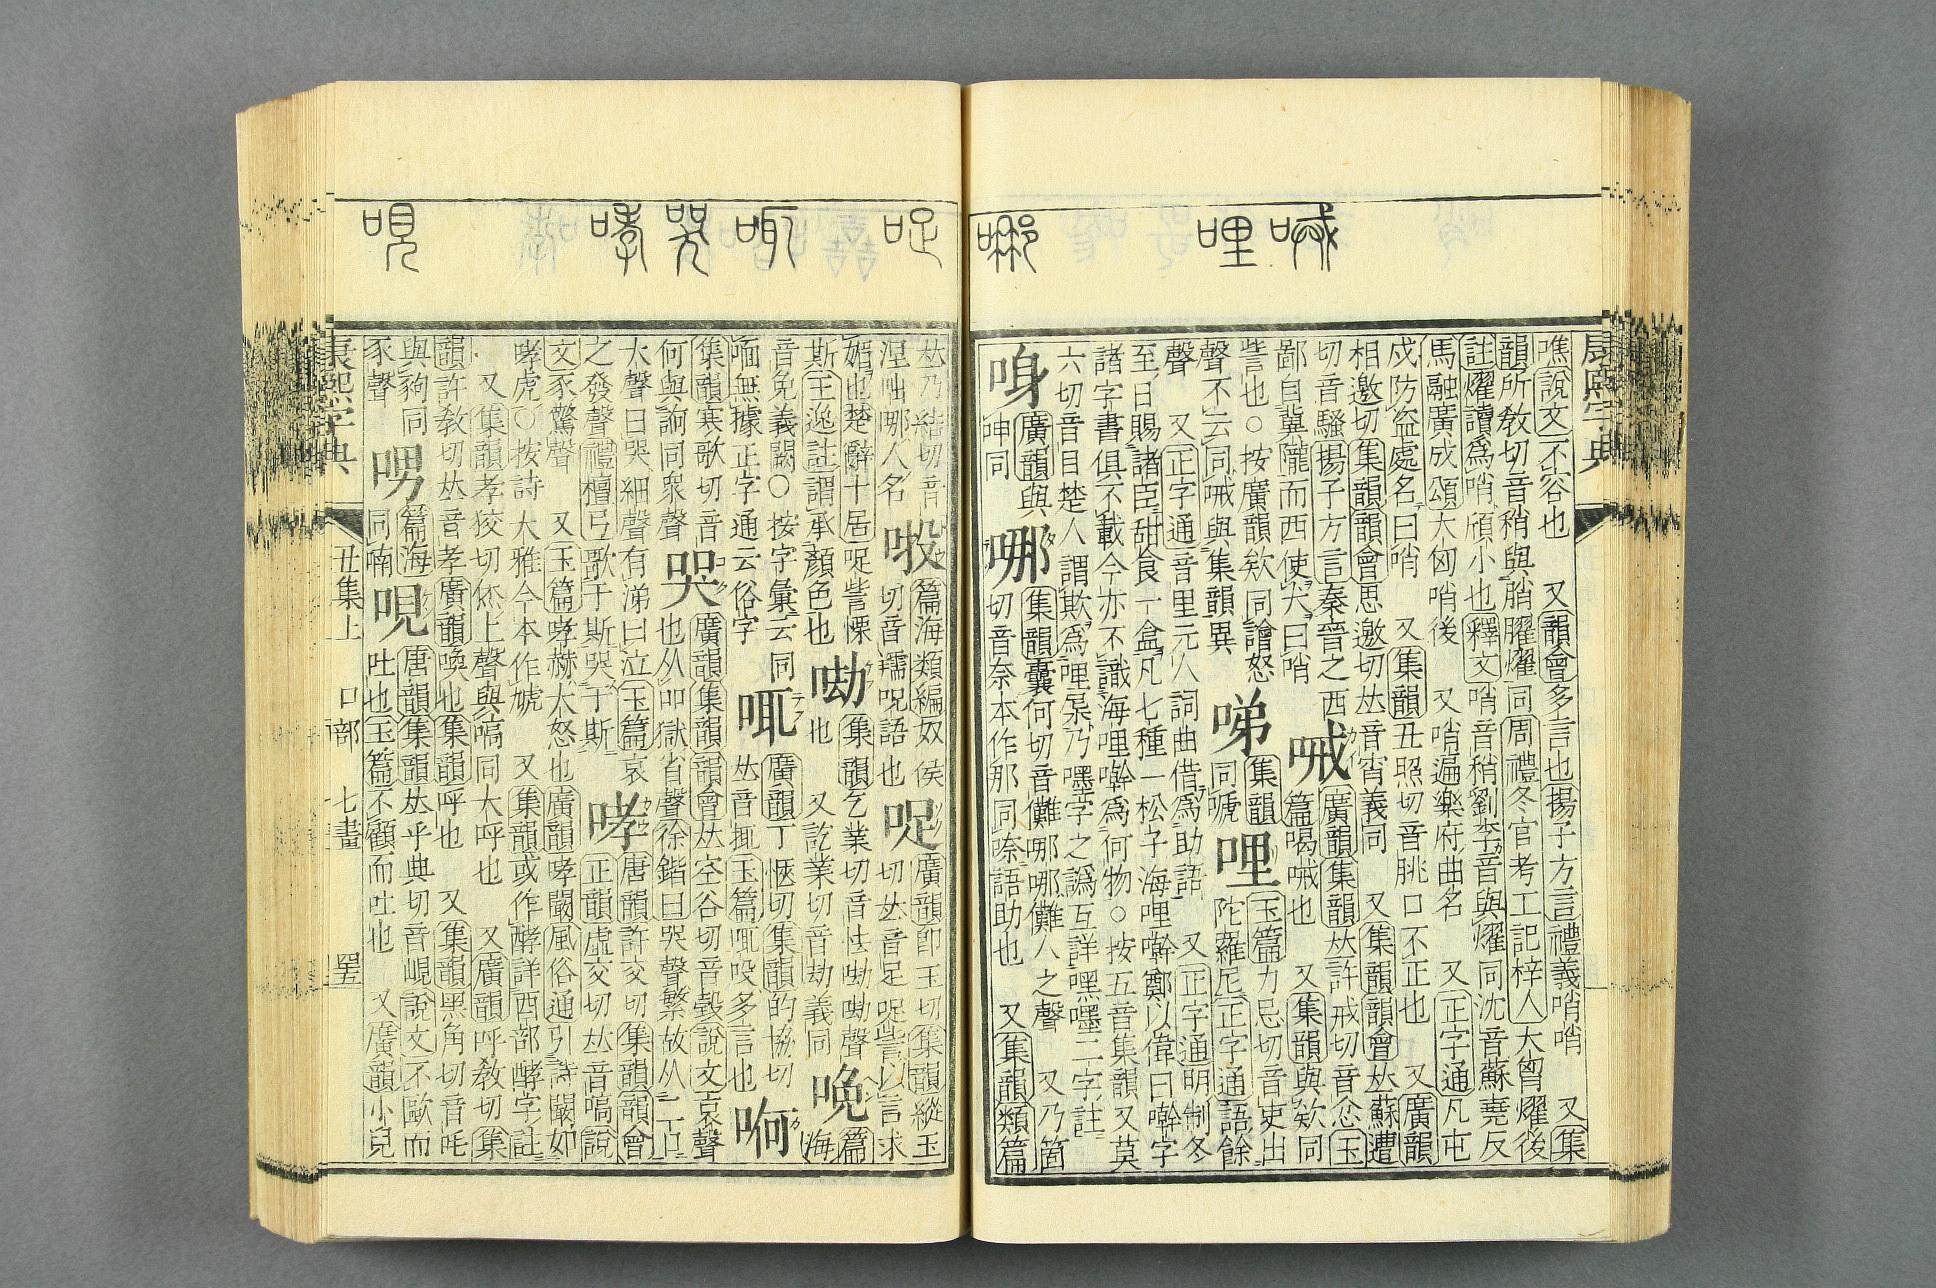 噍說文不容也 又韻會多言也揚子方言禮義哨哨 又集
韻所敎切音稍與䏴臞燿同周禮冬官考工記梓人大胷燿後
註燿讀爲哨頎小也釋文哨音稍劉李音與燿同沈音蘇堯反
馬融廣成頌大匈哨後 又哨遍樂府曲名 又正字通凡屯
戍防盜處名曰哨 又集韻丑照切音朓口不正也 又廣韻
相邀切集韻韻會思邀切𠀤音宵義同 又集韻韻會𠀤蘇遭
切音騷揚子方言秦晉之西
鄙自冀隴而西使犬曰哨
㖑
廣韻集韻𠀤許戒切音㤥玉
篇喝㖑也 又集韻與欸同
訾也○按廣韻欸同譮怒
聲不云同㖑與集韻異
㖒
集韻
同嗁
哩
玉篇力忌切音吏出
陀羅尼正字通語餘
聲 又正字通音里元人詞曲借爲助語 又正字通明制冬
至日賜諸臣甜食一盒凡七種一松子海哩噼鄭以偉曰噼字
諸字書俱不載今亦不識海哩噼爲何物○按五音集韻又莫
六切音目楚人謂欺爲哩杘乃嚜字之譌互詳嘿嚜二字註
廣韻與
呻同
哪
集韻囊何切音儺哪哪儺人之聲 又乃箇
切音奈本作那同㖠語助也 又集韻類篇
𠀤乃結切音
涅㖏哪人名
篇海類編奴侯
切音獳呪語也
哫
廣韻卽玉切集韻縱玉
切𠀤音足哫訾以言求
媚也楚辭卜居哫訾慄
斯王逸註謂承顏色也
集韻乞業切音怯
聲
也 又訖業切音劫義同
篇
海
音免義闕○按字彙云同
喕無據正字通云俗字
廣韻丁愜切集韻的協切
𠀤音輒玉篇
多言也
哬
集韻寒歌切音
何與訶同衆聲
哭
廣韻集韻韻會𠀤空谷切音觳說文哀聲
也从吅獄省聲徐鍇曰哭聲繁故从二口
大聲曰哭細聲有涕曰泣玉篇哀
之發聲禮檀弓歌于斯哭于斯
哮
唐韻許交切集韻韻會
正韻虛交切𠀤音嗃說
文豕驚聲 又玉篇哮赫大怒也廣韻哮闞風俗通引詩闞如
哮虎○按詩大雅今本作虓 又集韻或作酵詳酉部酵字註
又集韻孝狡切烋上聲與嗃同大呼也 又廣韻呼敎切集
韻許敎切𠀤音孝廣韻喚也集韻呼也 又集韻黑角切音吒
與豞同
豕聲
篇海
同喃
哯
唐韻集韻𠀤乎典切音峴說文不歐而
吐也玉篇不顧而吐也 又廣韻小兒
康熙字典
丑集上 口部 七畫